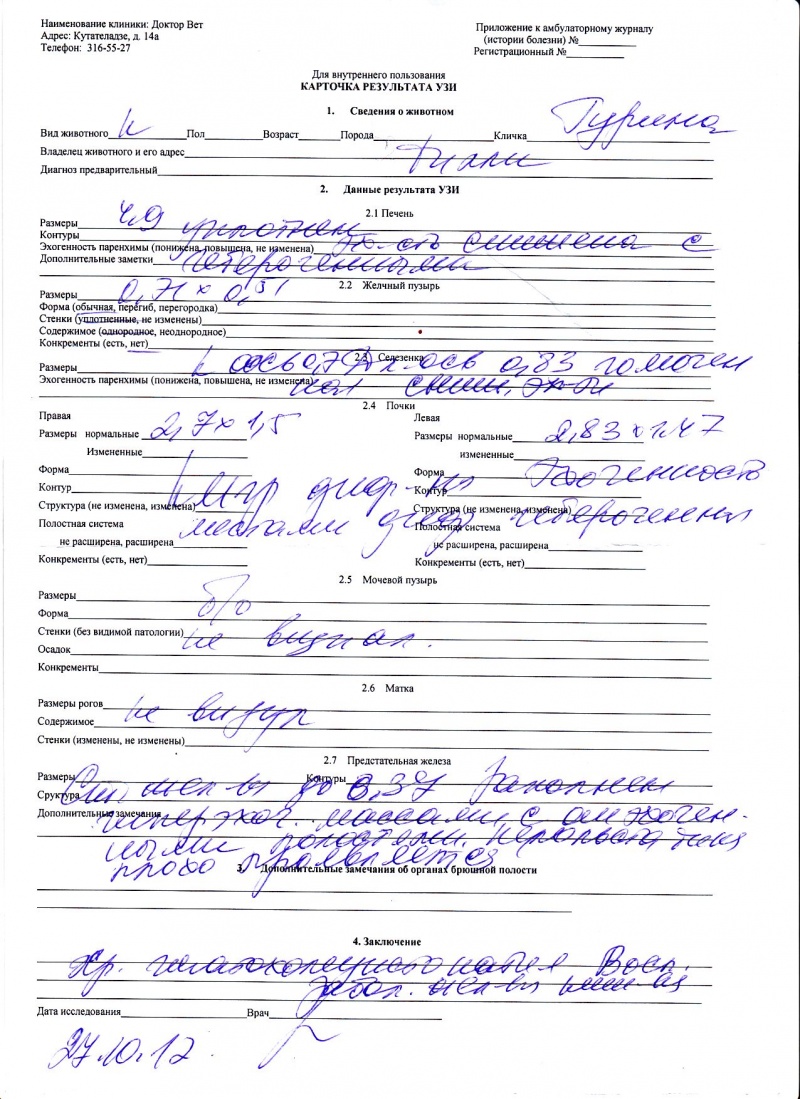 Наименование клиники: Доктор Вет
Адрес: Кутателадзе, д. 14а
Телефон: 316-55-27
Приложение к амбулаторному журналу
(истории болезни) №
Регистрационный №
Для внутреннего пользования
КАРТОЧКА РЕЗУЛЬТАТА УЗИ
1. Сведения о животном
Вид животного к Пол Возраст Порода Кличка Гурина
Владелец животного и его адрес
Диагноз предварительный
2. Данные результата УЗИ
2.1 Печень
Размеры 4,9
Контуры уплотнен
Эхогенность паренхимы (понижена, повышена, не изменена) эх-сть снижена с
Дополнительные заметки гетерогенными
2.2 Желчный пузырь
Размеры 0,71 х 0,51
Форма (обычная, перегиб, перегородка)
Стенки (уплотненные, не изменены)
Содержимое (однородное, неоднородное)
Конкременты (есть, нет)
2.3 Селезенка
Размеры 0,83 гомоген
Эхогенность паренхимы (понижена, повышена, не изменена)
2.4 Почки
Правая
Размеры нормальные 2,7 х 1,5
Измененные
Форма
Контур
Структура (не изменена, изменена)
Полостная система местами
не расширена, расширена
Конкременты (есть, нет)
Левая
Размеры нормальные 2,83 х 1.47
измененные
Форма Эхогенность
Контур
Структура (не изменена, изменена)
Полостная система
не расширена, расширена
Конкременты (есть, нет)
2.5 Мочевой пузырь
Размеры б/о
Форма
Стенки (без видимой патологии) не визуал.
Осадок
Конкременты
2.6 Матка
Размеры рогов не визур
Содержимое
Стенки (изменены, не изменены)
2.7 Предстательная железа
Размеры Контуры до 0,37 заполнен
Сруктура
Дополнительные замечания гиперэхог. массами с анэхоген-
ными полостями. перистальтика
плохо проявляется
3. Дополнительные замечания об органах брюшной полости
4. Заключение
Хр. Восп.
забол.
Дата исследования Врач
27.10.12